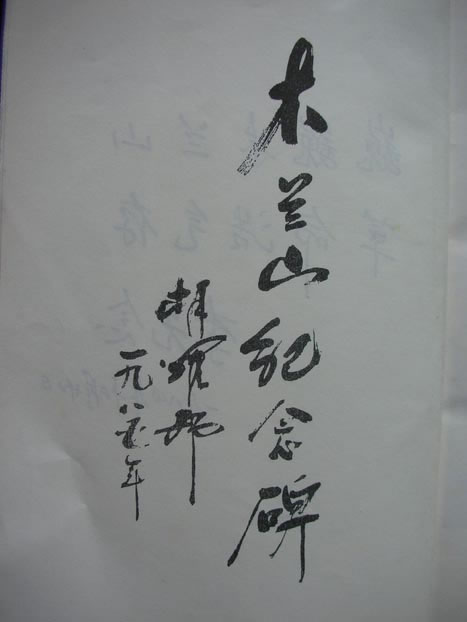 木兰山纪念碑
胡耀邦
一九八五年